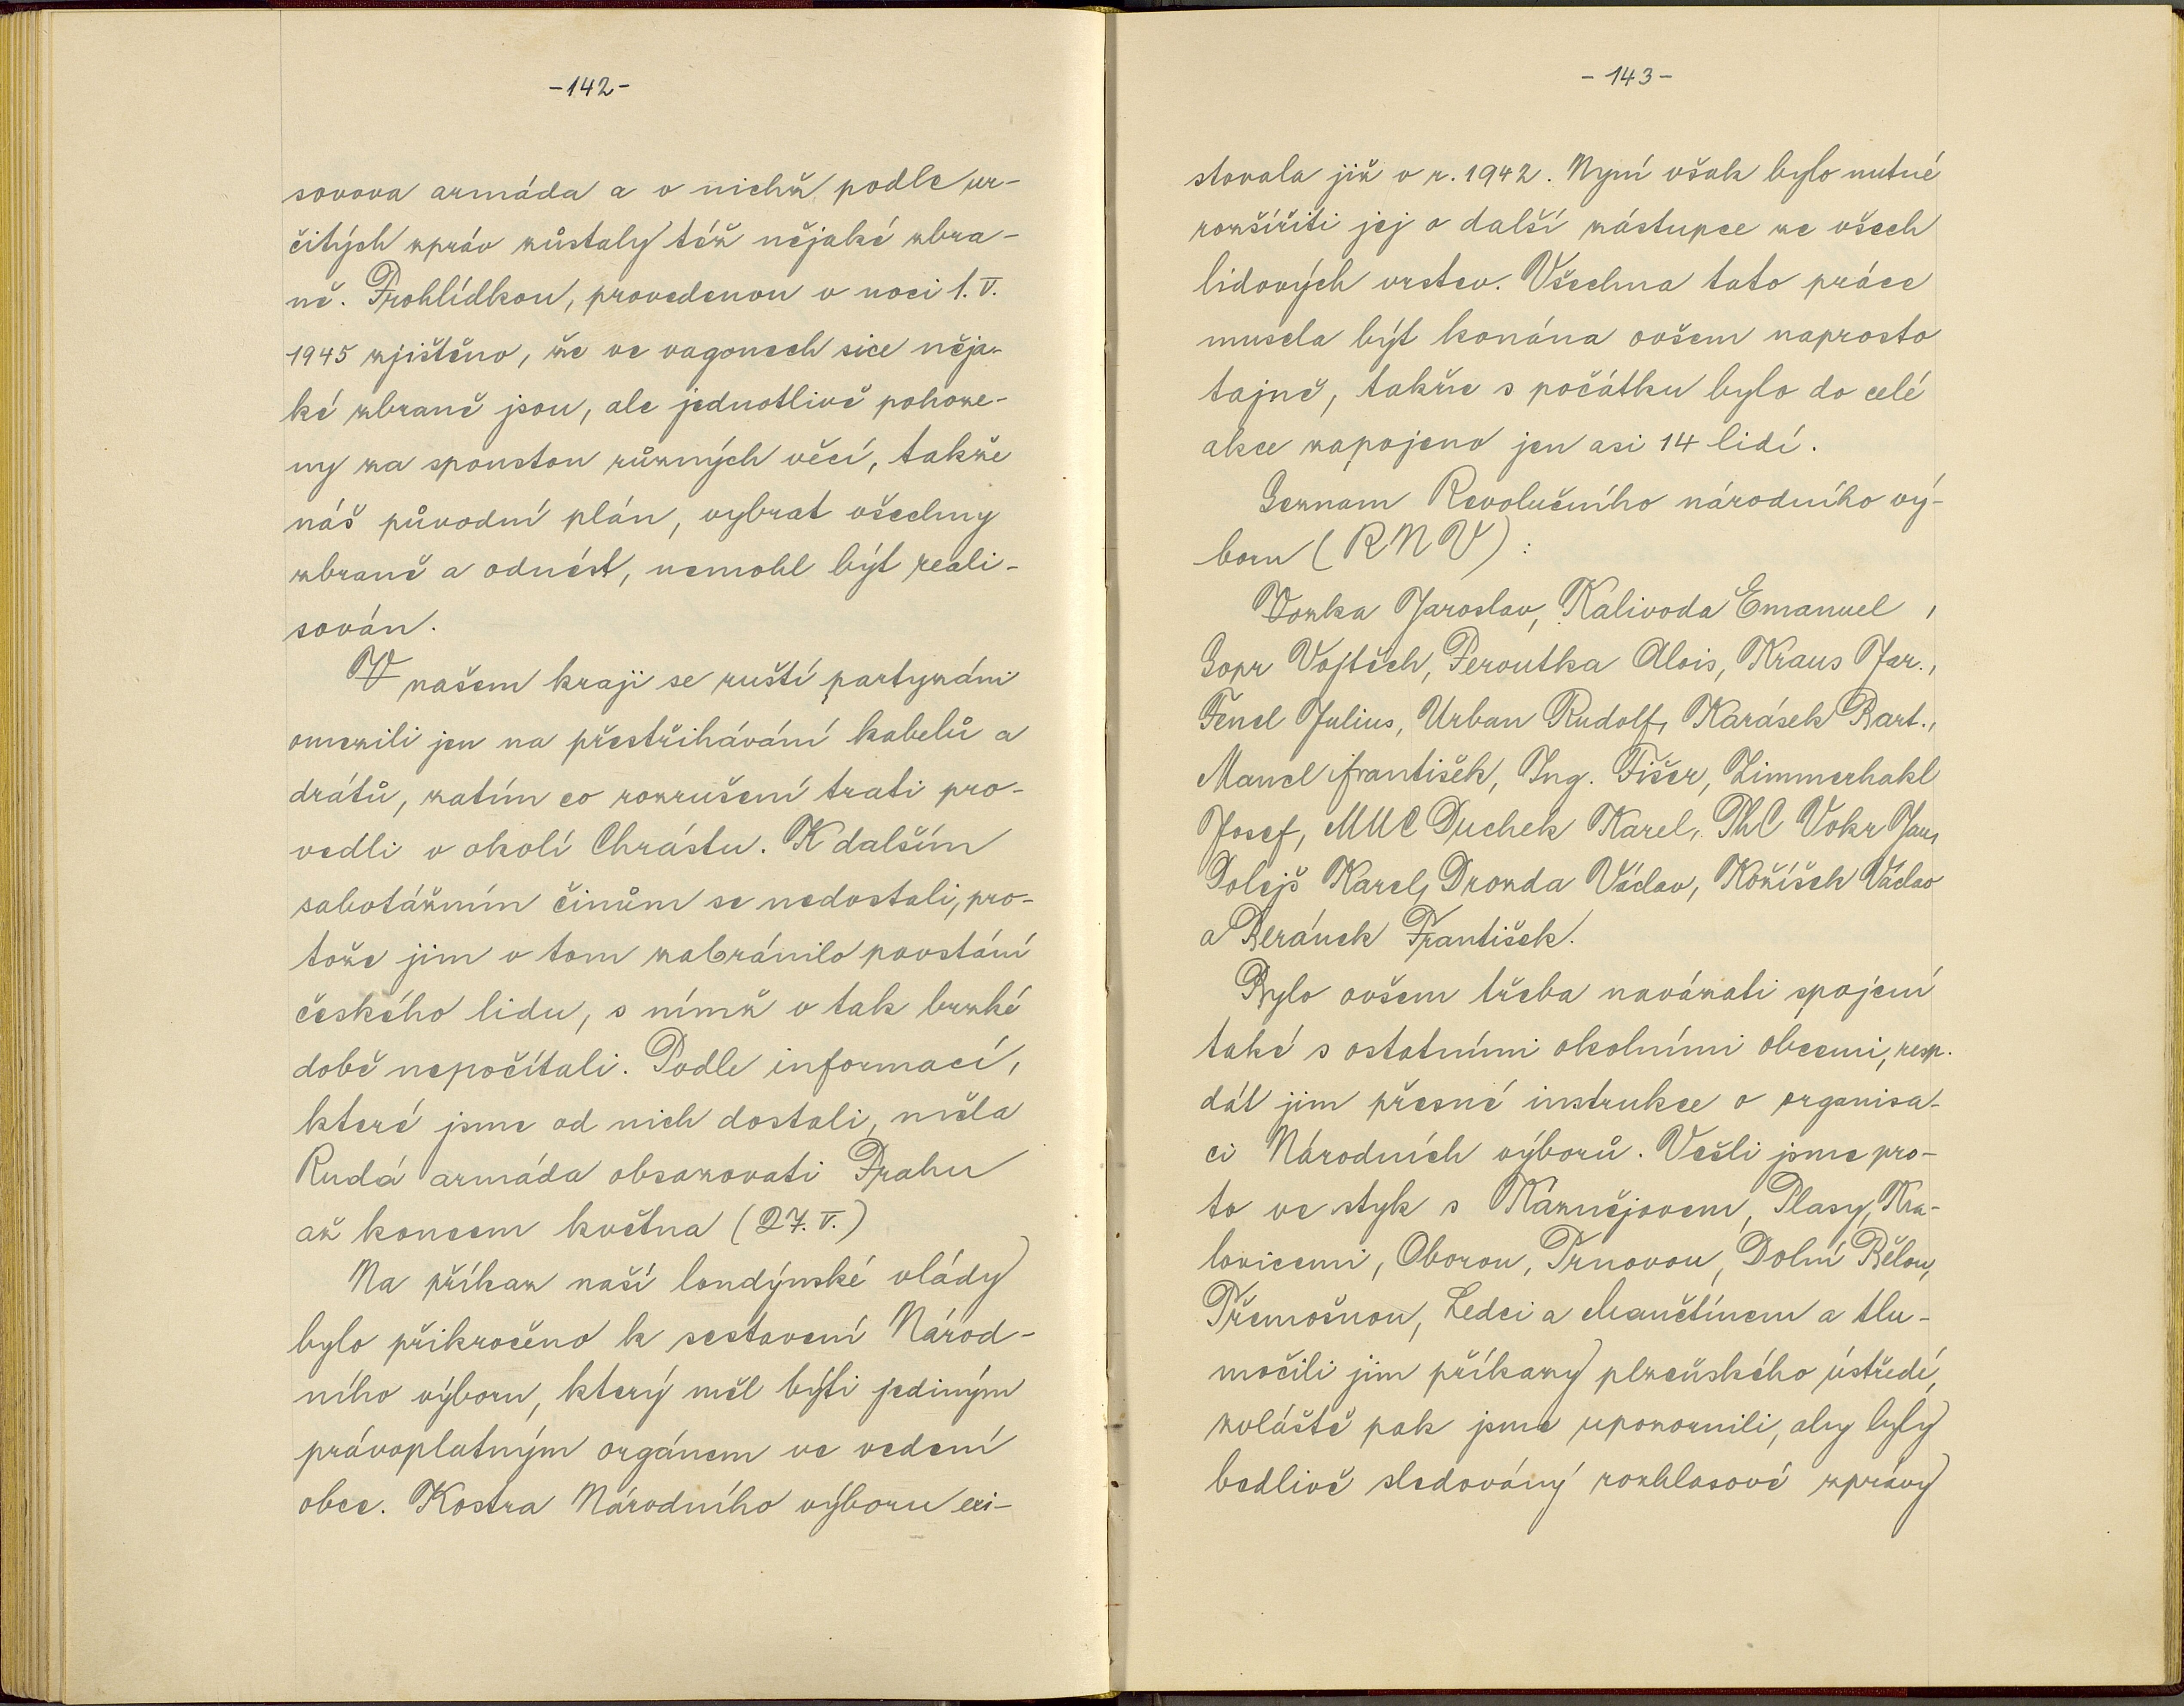 -142-
sovova armáda a v nichž podle ur-
čitých zpráv zůstaly též nějaké zbra-
ně. Prohlídkou, provedenou v noci 1. V.
1945 zjištěno, že ve vagonech sice něja-
ké zbraně jsou, ale jednotlivě pohoze-
ny za spoustou různých věcí, takže
náš původní plán, vybrat všechny
zbraně a odnést, nemohl být reali-
sován.
V našem kraji se ruští partyzáni
omezili jen na přestřihávání kabelů a
drátů, zatím co rozrušení trati pro-
vedli v okolí Chrástu. K dalším
sabotážním činům se nedostali, pro-
tože jim v tom zabránilo povstání
českého lidu, s nímž v tak brzké
době nepočítali. Podle informací,
které jsme od nich dostali, měla
Rudá armáda obsazovati Prahu
až koncem května (27. V.)
Na příkaz naší londýnské vlády
bylo přikročeno k sestavení Národ-
ního výboru, který měl býti jediným
právoplatným orgánem ve vedení
obce. Kostra Národního výboru exi-
- 143 -
stovala již v r. 1942. Nyní však bylo nutné
rozšířiti jej o další zástupce ze všech
lidových vrstev. Všechna tato práce
musela být konána ovšem naprosto
tajně, takže s počátku bylo do celé
akce zapojeno jen asi 14 lidí.
Seznam Revolučního národního vý-
boru (RNV):
Vozka Jaroslav, Kalivoda Emanuel,
Sopr Vojtěch, Peroutka Alois, Kraus Jar.,
Fencl Julius, Urban Rudolf, Karásek Bart.,
Mancl František, Ing. Fišer, Zimmerhakl
Josef, MUC Duchek Karel, PhC Vokr Jan,
Dolejš Karel, Drozda Václav, Kožíšek Václav
a Beránek František.
Bylo ovšem třeba navázati spojení
také s ostatními okolními obcemi, resp.
dát jim přesné instrukce o organisa-
ci Národních výborů. Vešli jsme pro-
to ve styk s Kaznějovem, Plasy, Kra-
lovicemi, Oborou, Trnovou, Dolní Bělou,
Třemošnou, Ledci a Manětínem a tlu-
močili jim příkazy plzeňského ústředí,
zvláště pak jsme upozornili, aby byly
bedlivě sledovány rozhlasové zprávy